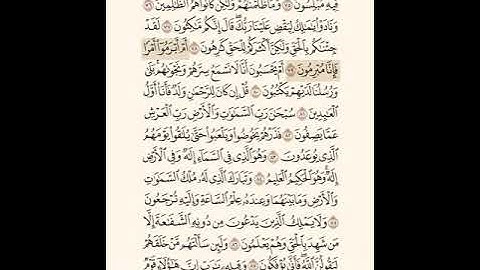 فِيهِ مُبْلِسُونَ ٧٥ وَمَا ظَلَمْنَٰهُمْ وَلَٰكِن كَانُوا۟ هُمُ ٱلظَّٰلِمِينَ ٧٦
وَنَادَوْا۟ يَٰمَٰلِكُ لِيَقْضِ عَلَيْنَا رَبُّكَ ۖ قَالَ إِنَّكُم مَّٰكِثُونَ ٧٧ لَقَدْ
جِئْنَٰكُم بِٱلْحَقِّ وَلَٰكِنَّ أَكْثَرَكُمْ لِلْحَقِّ كَٰرِهُونَ ٧٨ أَمْ أَبْرَمُوٓا۟ أَمْرًا
فَإِنَّا مُبْرِمُونَ ٧٩ أَمْ يَحْسَبُونَ أَنَّا لَا نَسْمَعُ سِرَّهُمْ وَنَجْوَىٰهُم ۚ بَلَىٰ
وَرُسُلُنَا لَدَيْهِمْ يَكْتُبُونَ ٨٠ قُلْ إِن كَانَ لِلرَّحْمَٰنِ وَلَدٌ فَأَنَا۠ أَوَّلُ
ٱلْعَٰبِدِينَ ٨١ سُبْحَٰنَ رَبِّ ٱلسَّمَٰوَٰتِ وَٱلْأَرْضِ رَبِّ ٱلْعَرْشِ
عَمَّا يَصِفُونَ ٨٢ فَذَرْهُمْ يَخُوضُوا۟ وَيَلْعَبُوا۟ حَتَّىٰ يُلَٰقُوا۟ يَوْمَهُمُ
ٱلَّذِى يُوعَدُونَ ٨٣ وَهُوَ ٱلَّذِى فِى ٱلسَّمَآءِ إِلَٰهٌ وَفِى ٱلْأَرْضِ
إِلَٰهٌ ۚ وَهُوَ ٱلْحَكِيمُ ٱلْعَلِيمُ ٨٤ وَتَبَارَكَ ٱلَّذِى لَهُۥ مُلْكُ ٱلسَّمَٰوَٰتِ
وَٱلْأَرْضِ وَمَا بَيْنَهُمَا وَعِندَهُۥ عِلْمُ ٱلسَّاعَةِ وَإِلَيْهِ تُرْجَعُونَ
٨٥ وَلَا يَمْلِكُ ٱلَّذِينَ يَدْعُونَ مِن دُونِهِ ٱلشَّفَٰعَةَ إِلَّا
مَن شَهِدَ بِٱلْحَقِّ وَهُمْ يَعْلَمُونَ ٨٦ وَلَئِن سَأَلْتَهُم مَّنْ خَلَقَهُمْ
لَيَقُولُنَّ ٱللَّهُ ۖ فَأَنَّىٰ يُؤْفَكُونَ ٨٧ وَقِيلِهِۦ يَٰرَبِّ إِنَّ هَٰٓؤُلَآءِ قَوْمٌ